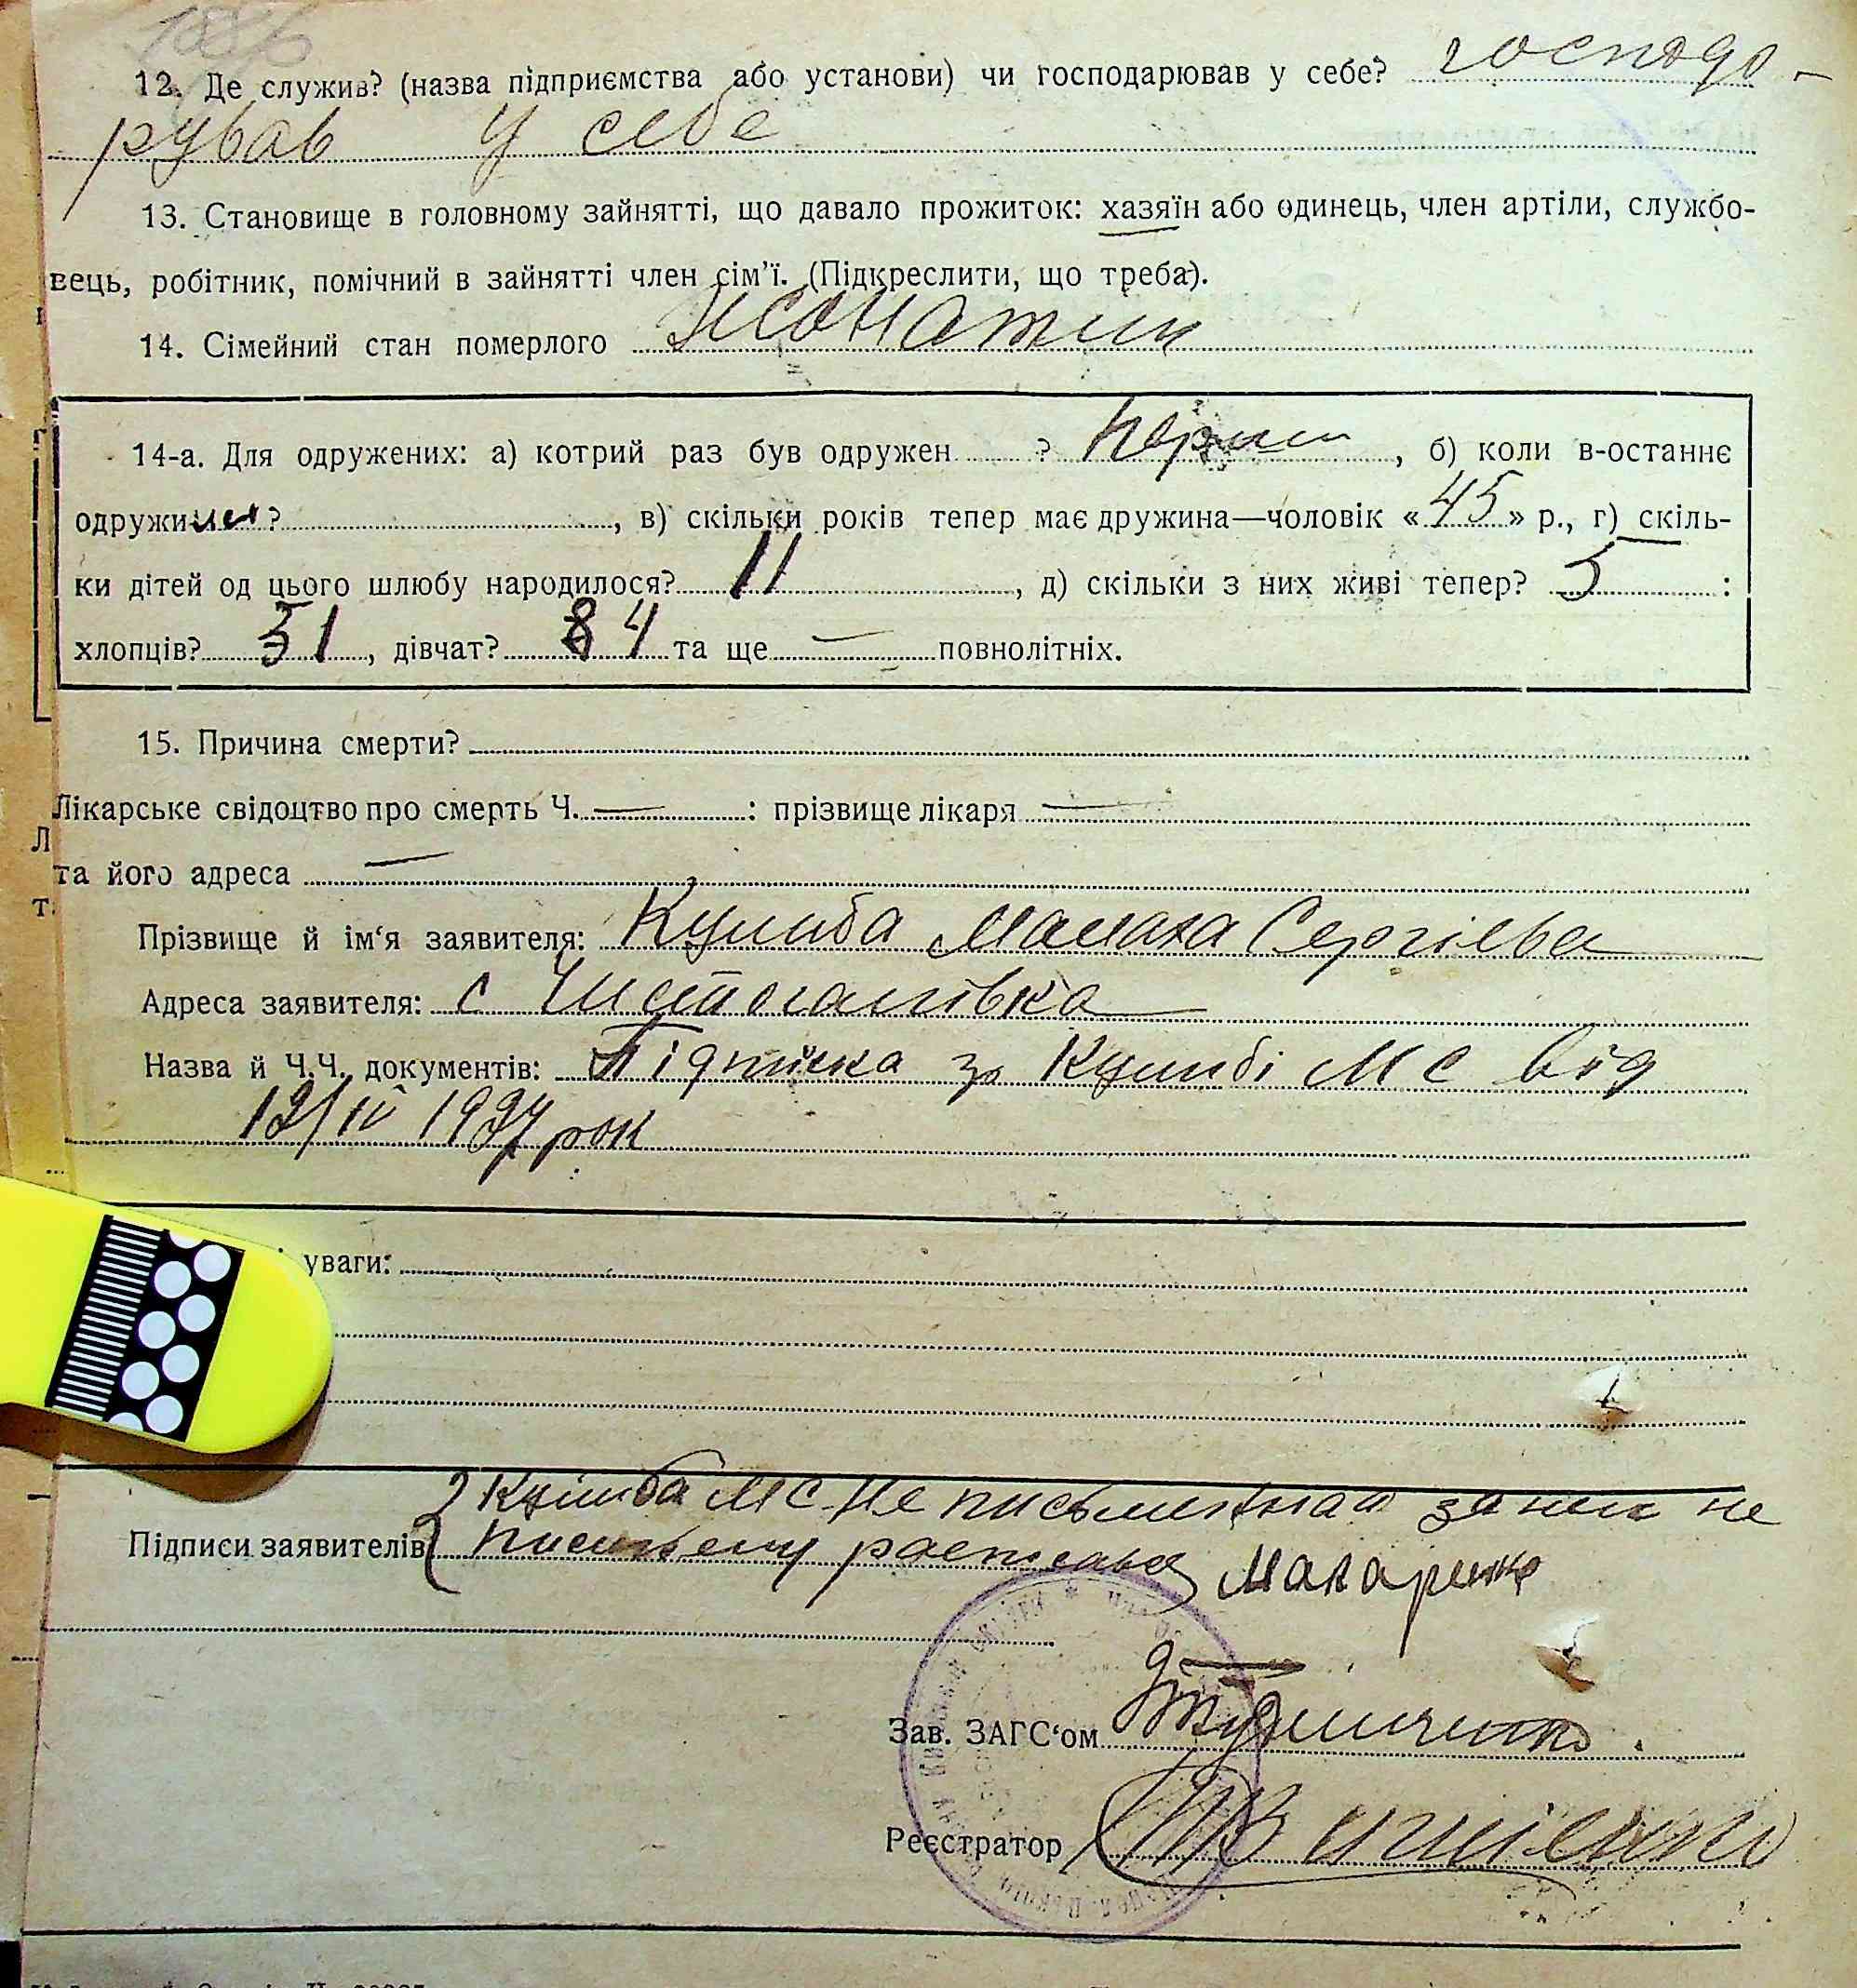 12. Де служив? (назва підприємства або установи) чи господарював у себе? господо-
рував у себе
13. Становище в головному зайнятті, що давало прожиток: хазяїн або одинець, член артіли, службо-
вець, робітник, помічний в зайнятті член сім'ї. (Підкреслити, що треба).
14. Сімейний стан померлого жонатий
14-а. Для одружених: а) котрий раз був одружен ? перший, б) коли в-останнє
одружи ?, в) скільки років тепер має дружина—чоловік «45» р., г) скіль-
ки дітей од цього шлюбу народилося? 11, д) скільки з них живі тепер? 5 :
хлопців? 1, дівчат? 4 та ще — повнолітніх.
15. Причина смерти?
Лікарське свідоцтво про смерть Ч. — : прізвище лікаря —
та його адреса —
Прізвище й ім'я заявителя: Кулиба Сергієва
Адреса заявителя: с Чистогалівка
Назва й Ч.Ч. документів: Підписка за Кулибі М С від
12/IV 1927 рок
уваги:
Кулиба МС не письменная за них не
Підписи заявителів
Зав. ЗАГС'ом
Реєстратор